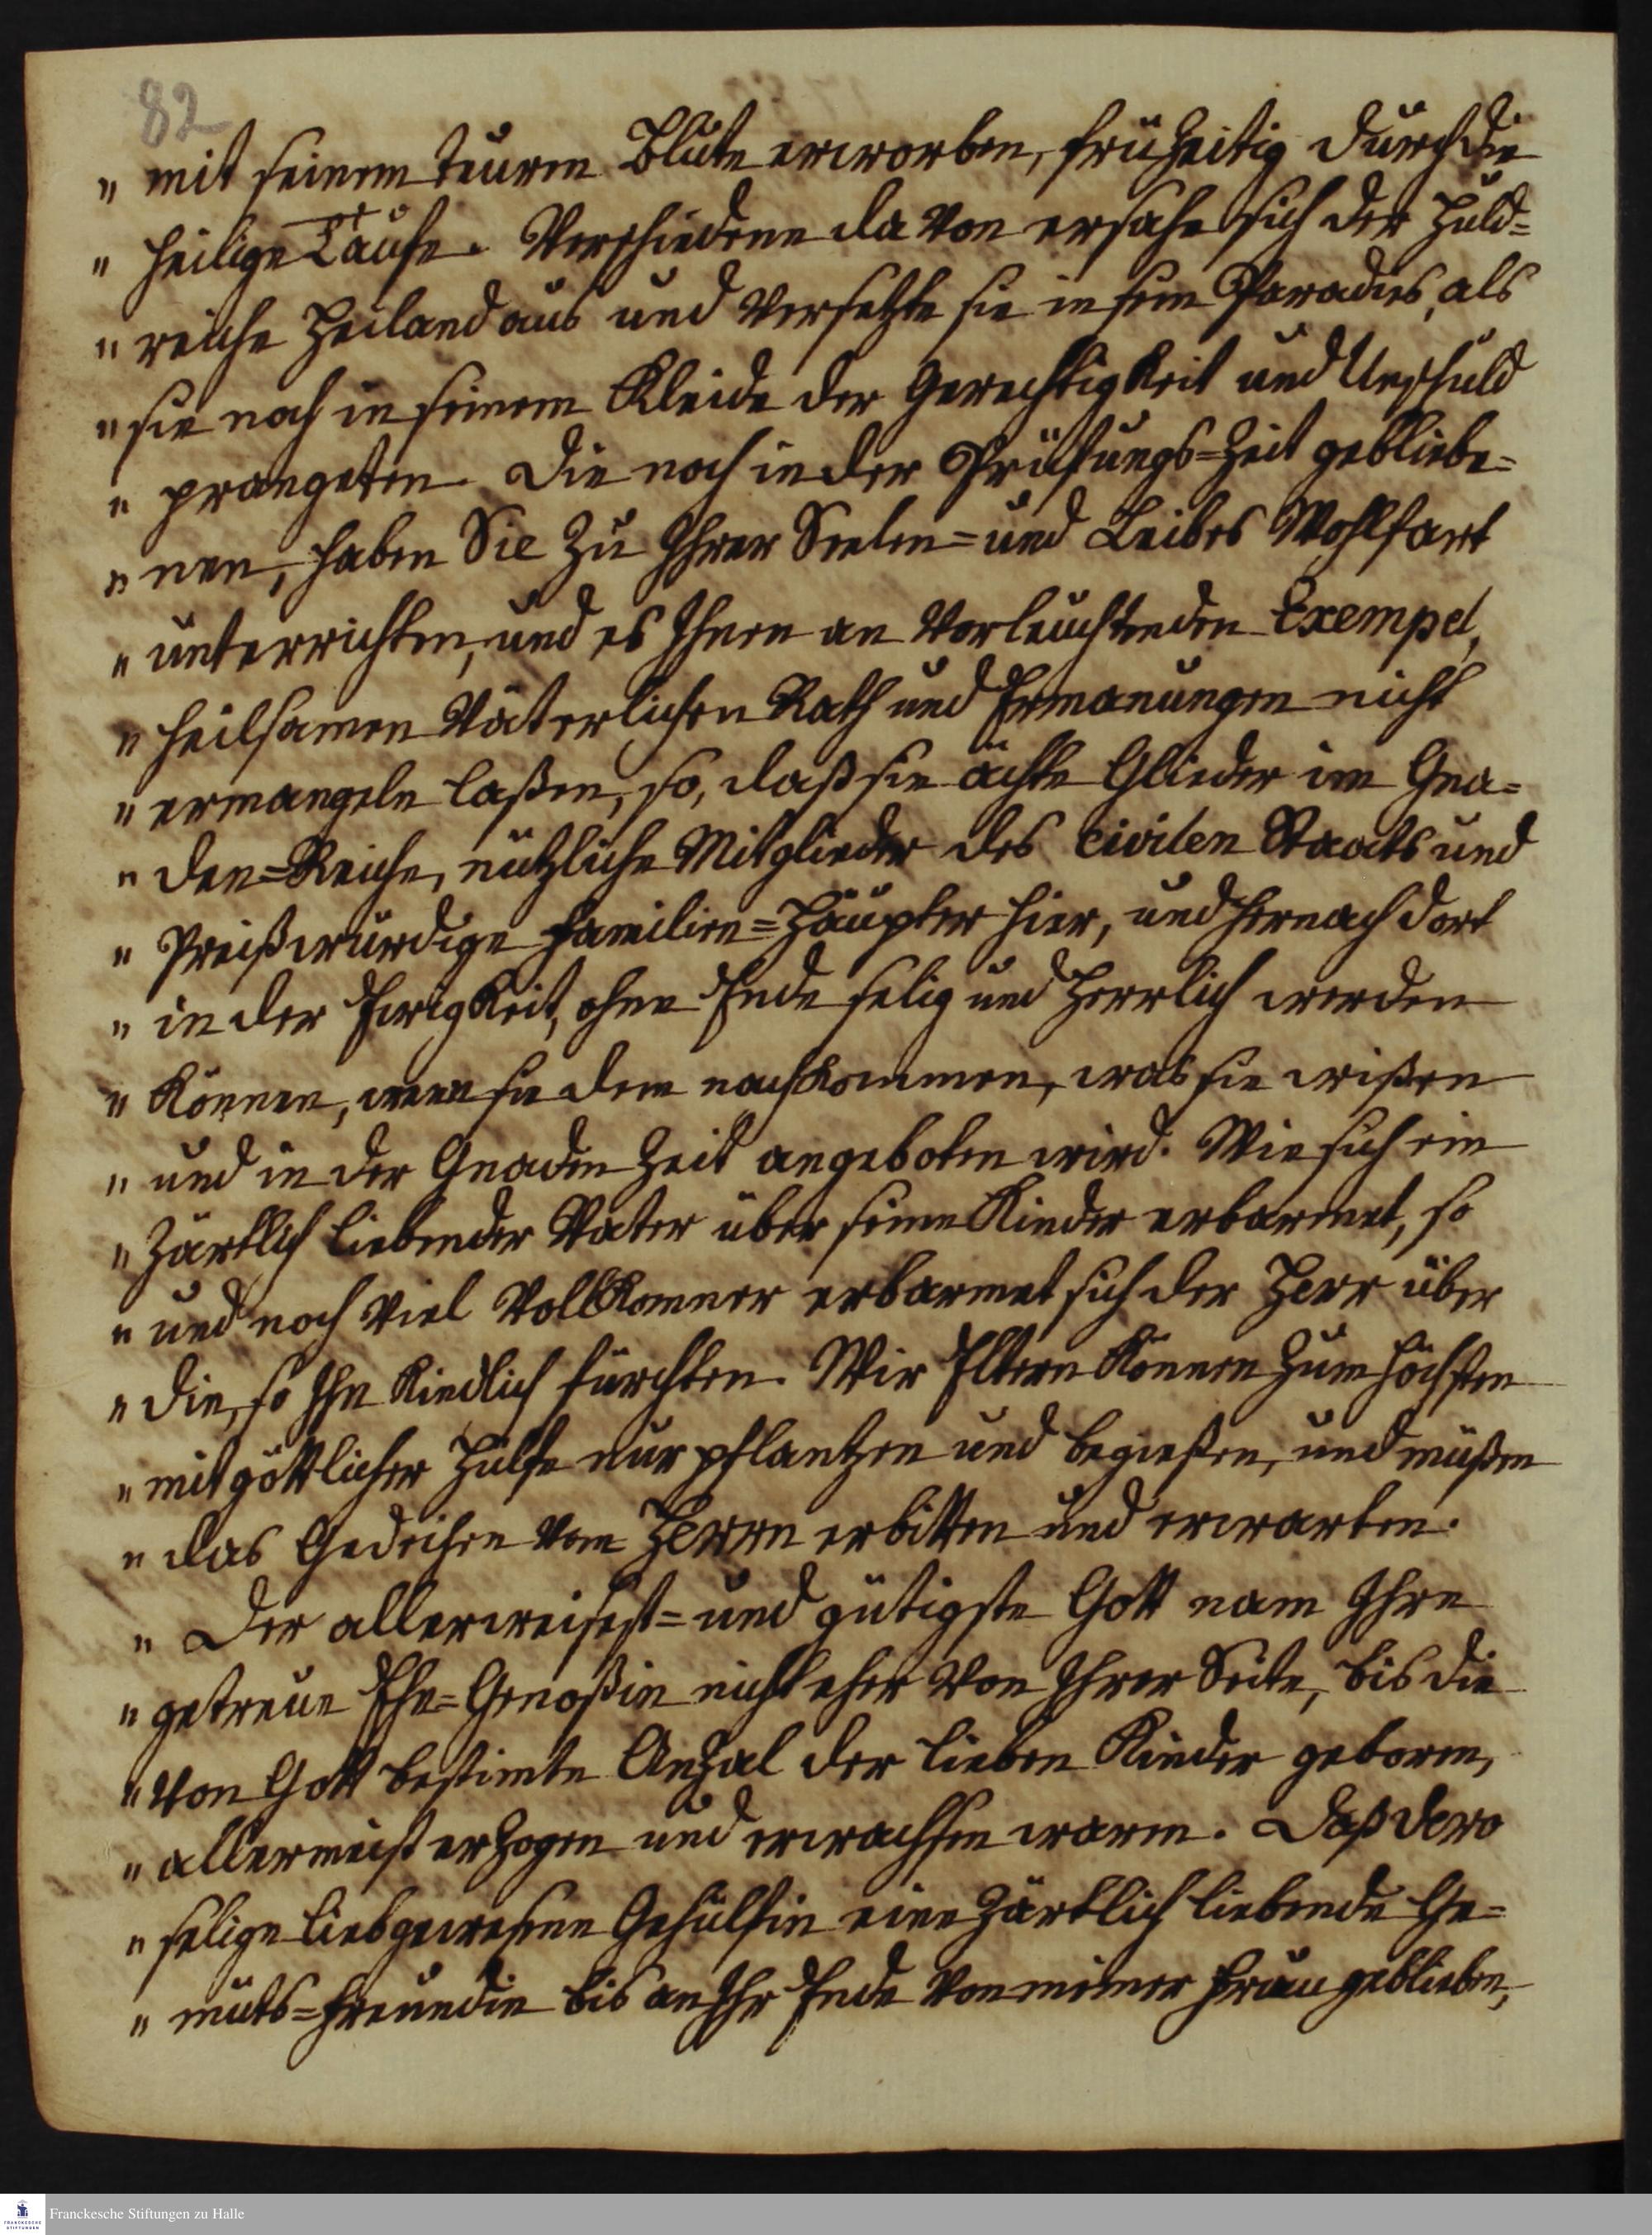 82
" mit seinem teuren Blute erworben, früzeitig durch die
" heilige Taufe. Verschiedene da von ersahe sich der Huld=
" reiche Heiland aus und versetzte sie in sein Paradies, als
" sie noch in seinem Kleide der Gerechtigkeit und Unschuld
" prangeten. Die noch in der Prüfungs=Zeit gebliebe=
" nen, haben Sie zu Ihrer Seelen= und Leibes Wohlfart
" unterrichten, und es Ihnen an vorleuchtenden Exempel,
" heilsamen Väterlichen Rath und Ermanungen nicht
" ermangeln laßen, so, daß sie ächte Glieder im Gna=
" den=Reiche, nützliche Mitglieder des civilen Staats und
" Preißwürdige Familien=Häupter hier, und hernach dort
" in der Ewigkeit, ohne Ende selig und Herrlich werden
" Können, wenn sie dem nachkommen, was sie wißen
" und in der Gnaden Zeit angeboten wird. Wie sich ein
" Zärtlich liebender Vater über seine Kinder erbarmet, so
" und noch viel vollkomner erbarmet sich der Herr über
" die, so Ihn Kindlich fürchten. Wir Eltern Können zum höchsten
" mit göttlicher Hülfe nur pflantzen und begießen, und müßen
" das Gedeihen vom Herrn erbitten und erwarten.
" Der allerweisest= und gütigste Gott nam Ihre
" getreue Ehe=Genoßin nicht eher von Ihrer Seite, bis die
" von Gott bestimte Anzal der lieben Kinder geboren,
" allermeist erzogen und erwachsen waren. Daß dero
" selige liebgewesene Gehülfin eine Zärtlich liebende Ge=
" müts=Freundin bis an Ihr Ende von meiner Frau geblieben,
Franckesche Stiftungen zu Halle